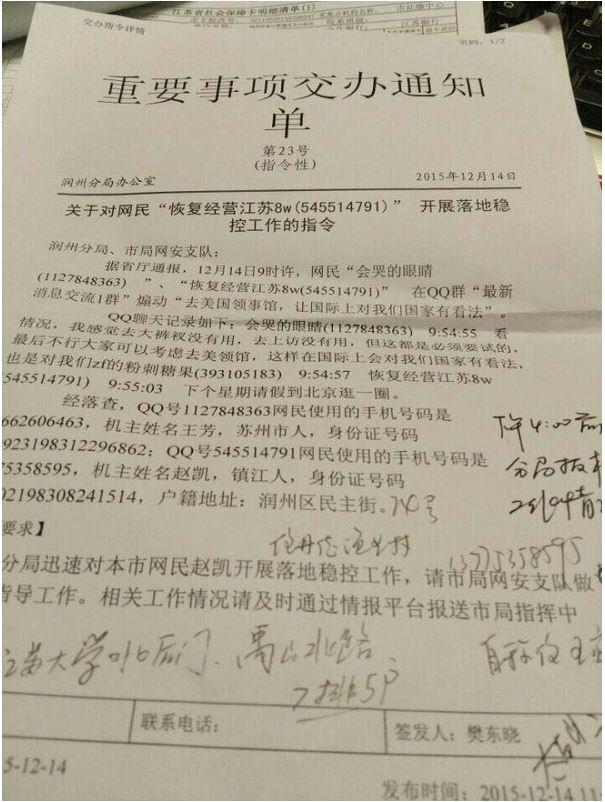 交办指令详情
江苏省社会保障卡明细清单(1)
页码，1/2
重要事项交办通知
单
第23号
(指令性)
润州分局办公室 2015年12月14日
关于对网民“恢复经营江苏8w(545514791)” 开展落地稳
控工作的指令
润州分局、市局网安支队：
据省厅通报，12月14日9时许，网民“会哭的眼睛
(1127848363) ”、“恢复经营江苏8w(545514791)” 在QQ群“最新
消息交流1群”煽动“去美国领事馆，让国际上对我们国家有看法”。
QQ聊天记录如下：会哭的眼睛(1127848363) 9:54:55 看
情况，我感觉去大裤衩没有用，去上访没有用，但这都是必须要试的，
最后不行大家可以考虑去美领馆，这样在国际上会对我们国家有看法，
也是对我们zf的粉刺糖果(393105183) 9:54:57 恢复经营江苏8w
545514791) 9:55:03 下个星期请假到北京逛一圈。
经落查，QQ号1127848363网民使用的手机号码是
662606463，机主姓名王芳，苏州市人，身份证号码
0923198312296862；QQ号545514791网民使用的手机号码是
75358595，机主姓名赵凯，镇江人，身份证号码
02198308241514，户籍地址：润州区民主街。
要求】
13775358595
分局迅速对本市网民赵凯开展落地稳控工作，请市局网安支队做
指导工作。相关工作情况请及时通过情报平台报送市局指挥中
大学北后门、禹山北路
联系电话：
签发人：樊东晓
5-12-14
发布时间：2015-12-14 11